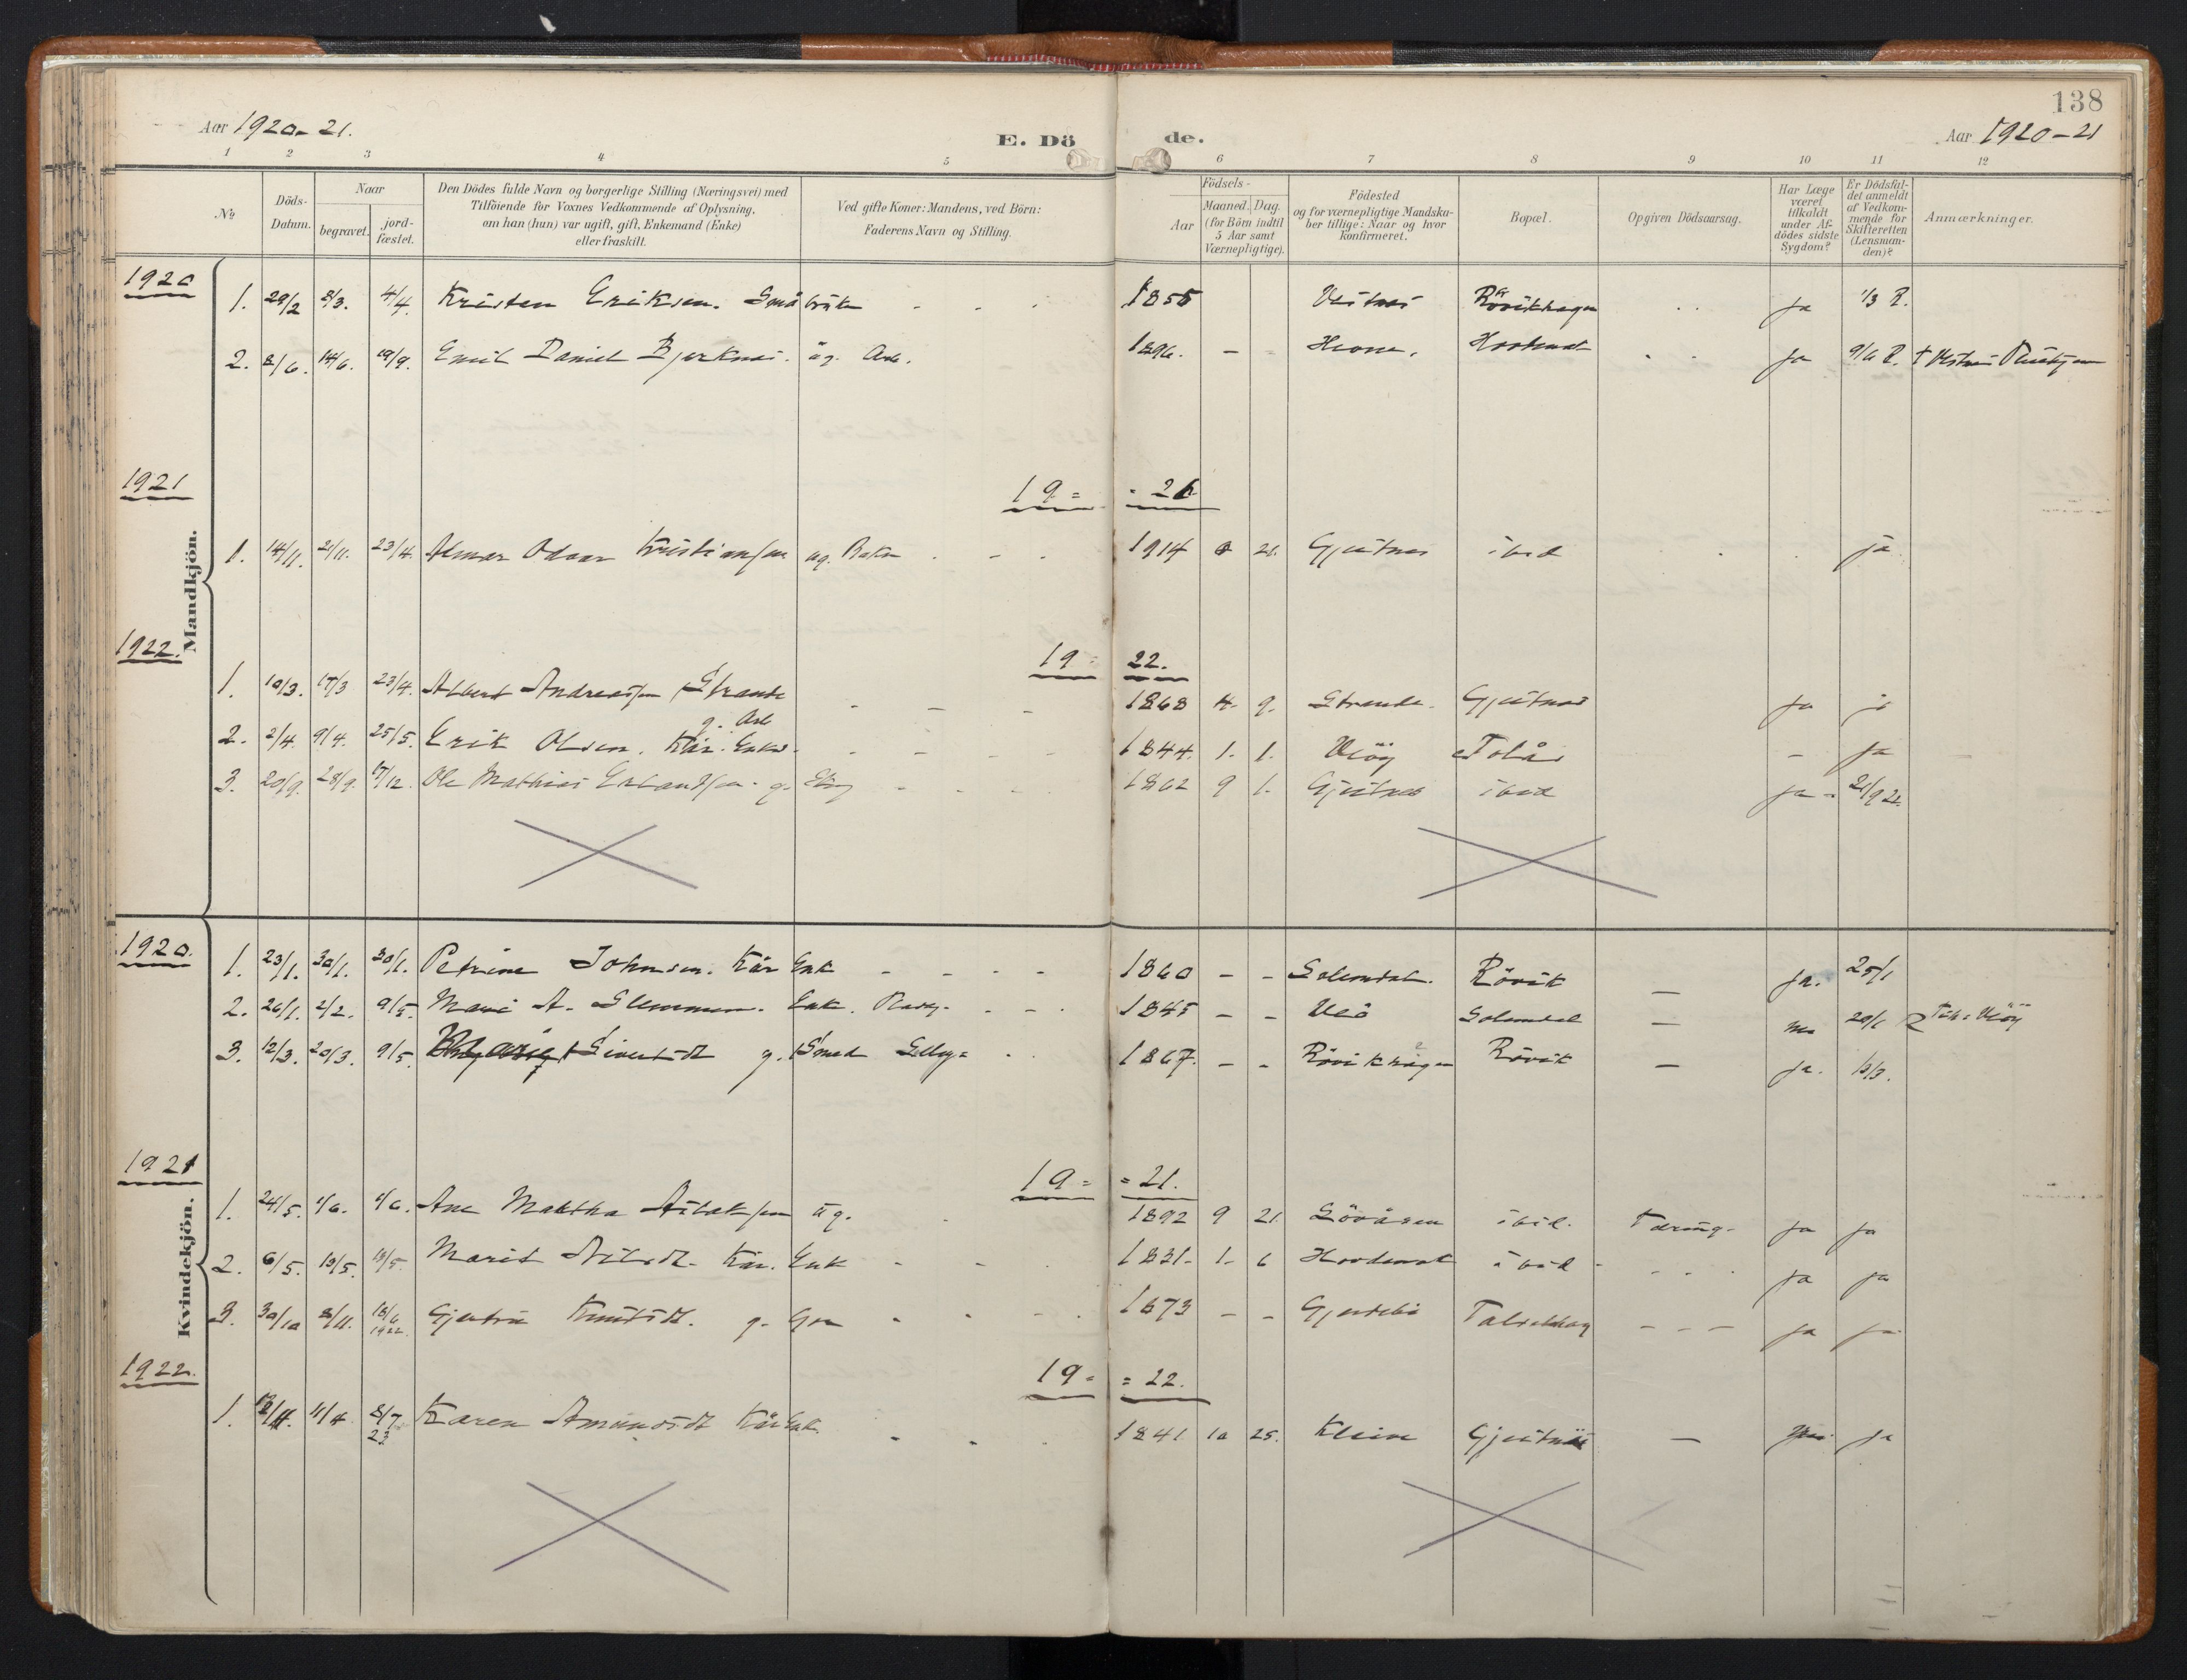 138
Aar 1920-21.
E. Dö de.
Aar 1920-21
1 2 3 4 5 6 7 8 9 10 11 12
№
Döds-Datum.
Naar begravet. jord-fæstet.
Den Dödes fulde Navn og borgerlige Stilling (Næringsvei) med Tilföiende for Voxnes Vedkommende af Oplysning, om han (hun) var ugift, gift, Enkemand (Enke) eller fraskilt.
Ved gifte Koner: Mandens, ved Börn: Faderens Navn og Stilling.
Födsels-
Aar Maaned. Dag. (for Börn indtil 5 Aar samt Værnepligtige).
Födested og for værnepligtige Mandska-ber tillige: Naar og hvor Konfirmeret.
Bopæl.
Opgiven Dödsaarsag.
Har Læge været tilkaldt under Af-dödes sidste Sygdom?
Er Dödsfal-det anmeldt af Vedkom-mende for Skifteretten (Lensman-den)?
Anmærkninger.
Mandkjön.
1920
1. 29/2 8/3. 4/4. Kristen Eriksen. Småbruker 1855 Vestnes Rövikhagen ja 1/3 R.
2. 8/6. 14/6. 19/9. Emil Daniel Bjerknes. ug. Arb. 1896. - - ja 9/6 R.
1921
19 = = 21
1. 14/11. 21/11. 23/4. Almar Odvar Kristiansen ug. 1914 21. Gjeitnes ibid ja
1922.
19 = 22.
1. 10/3. 17/3 23/4. Albert Andreassen Strande 1868 4. 9. Strande. Gjeitnes ja ja
g. Arb
2. 2/4. 9/4. 25/5. Erik Olsen. Kår. Enkem. 1844. 1. 1. Veöy Tolås - ja
3. 20/9. 28/9. 17/12. Ole Mathias Erlandsen. g. 1862 9 1. Gjeitnes ibid ja - 21/9 22.
Kvindekjön.
1920.
1. 23/1. 30/1. 30/1. Petrine Johnsen. Kår Enk - - - - 1860 - - Solemdal. Rövik - ja. 25/1
2. 26/1. 2/2. 9/5. Marie A. Slemmen. Enk. 1845 - - Veö Solemdal - 20/1
3. 12/3. 20/3. 9/5. Sivertsdt g. Smed 1867. - - Rövikhagen Rövik - ja.
1921
19 = = 21.
1. 24/5. 1/6. 1/6. Ane Maktha Aslaksen ug. 1892 9 21. Lövåsen ibid. Tæring. ja ja
2. 6/5. 13/5. 13/5. Marit Nilsdt. Kår. Enk 1831. 1. 6 ibid ja ja
3. 30/10 8/11. 18/6 1922. Gjertru Knutsdt. g. 1873 - - Gjerdebö - - - ja ja
1922.
19 = = 22.
1. 11/4 8/7 23 Karen Amundsdt Kår Enk. 1841 10 25. Kleive Gjeitnes - ja